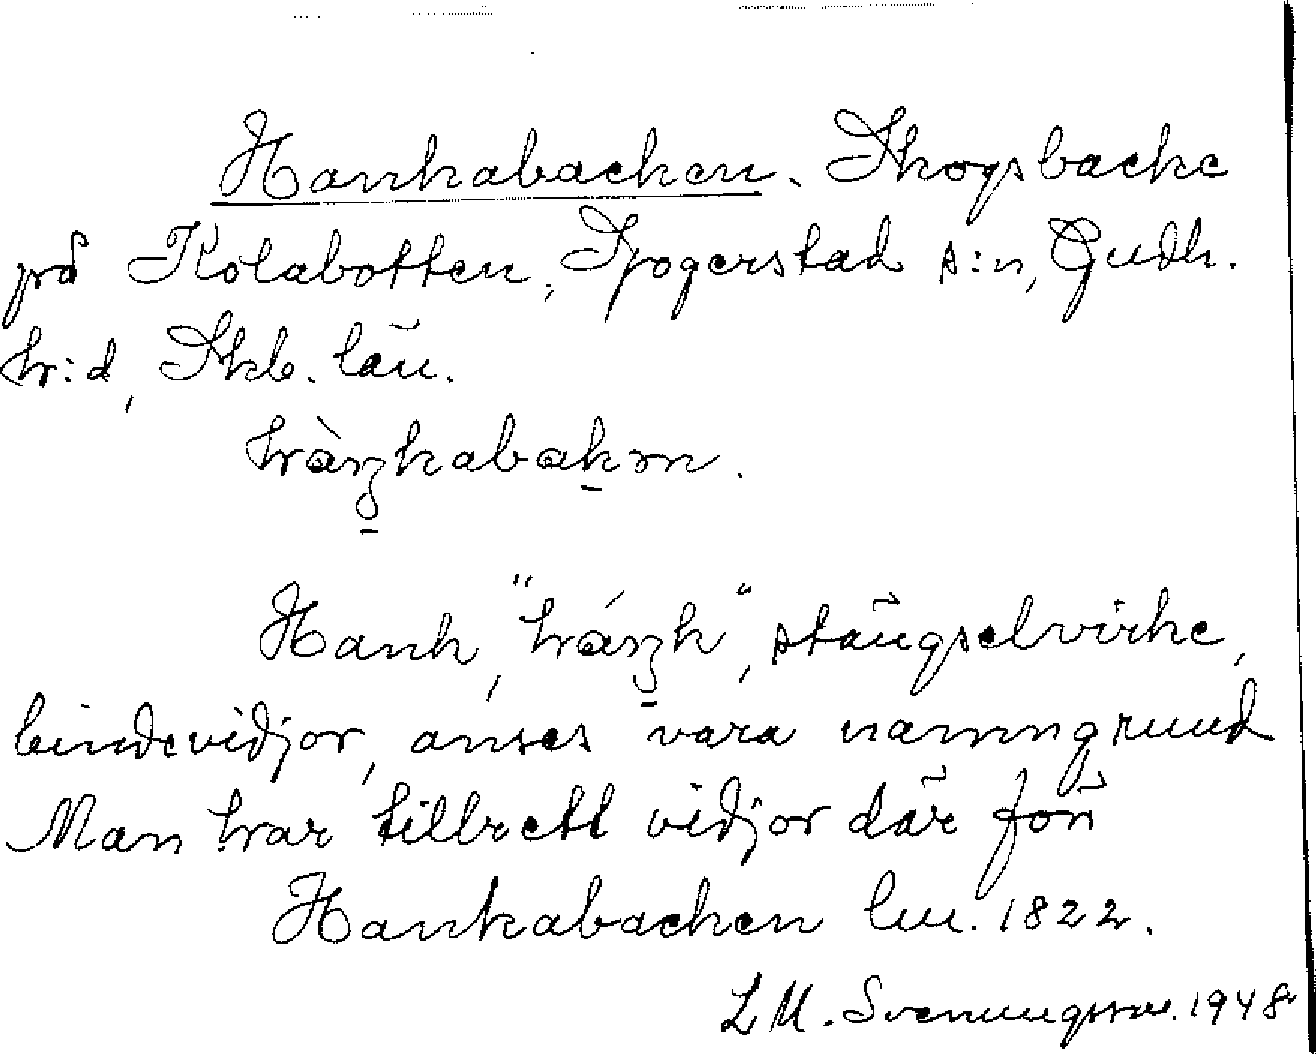 Hankabacken. Skogsbacke
på Kolabotten, Sjogerstad s:n, Gudh.
hr:d, Skb. län.
hàŋkabakən.
Hank, "háŋk", stängselvirke,
bindevidjor, anses vara namngrund
Man har tillrett vidjor där förr
Hankabacken lm. 1822.
L M. Svenungsson. 1948